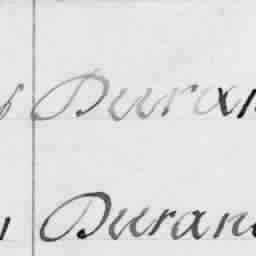 Duran
Duran